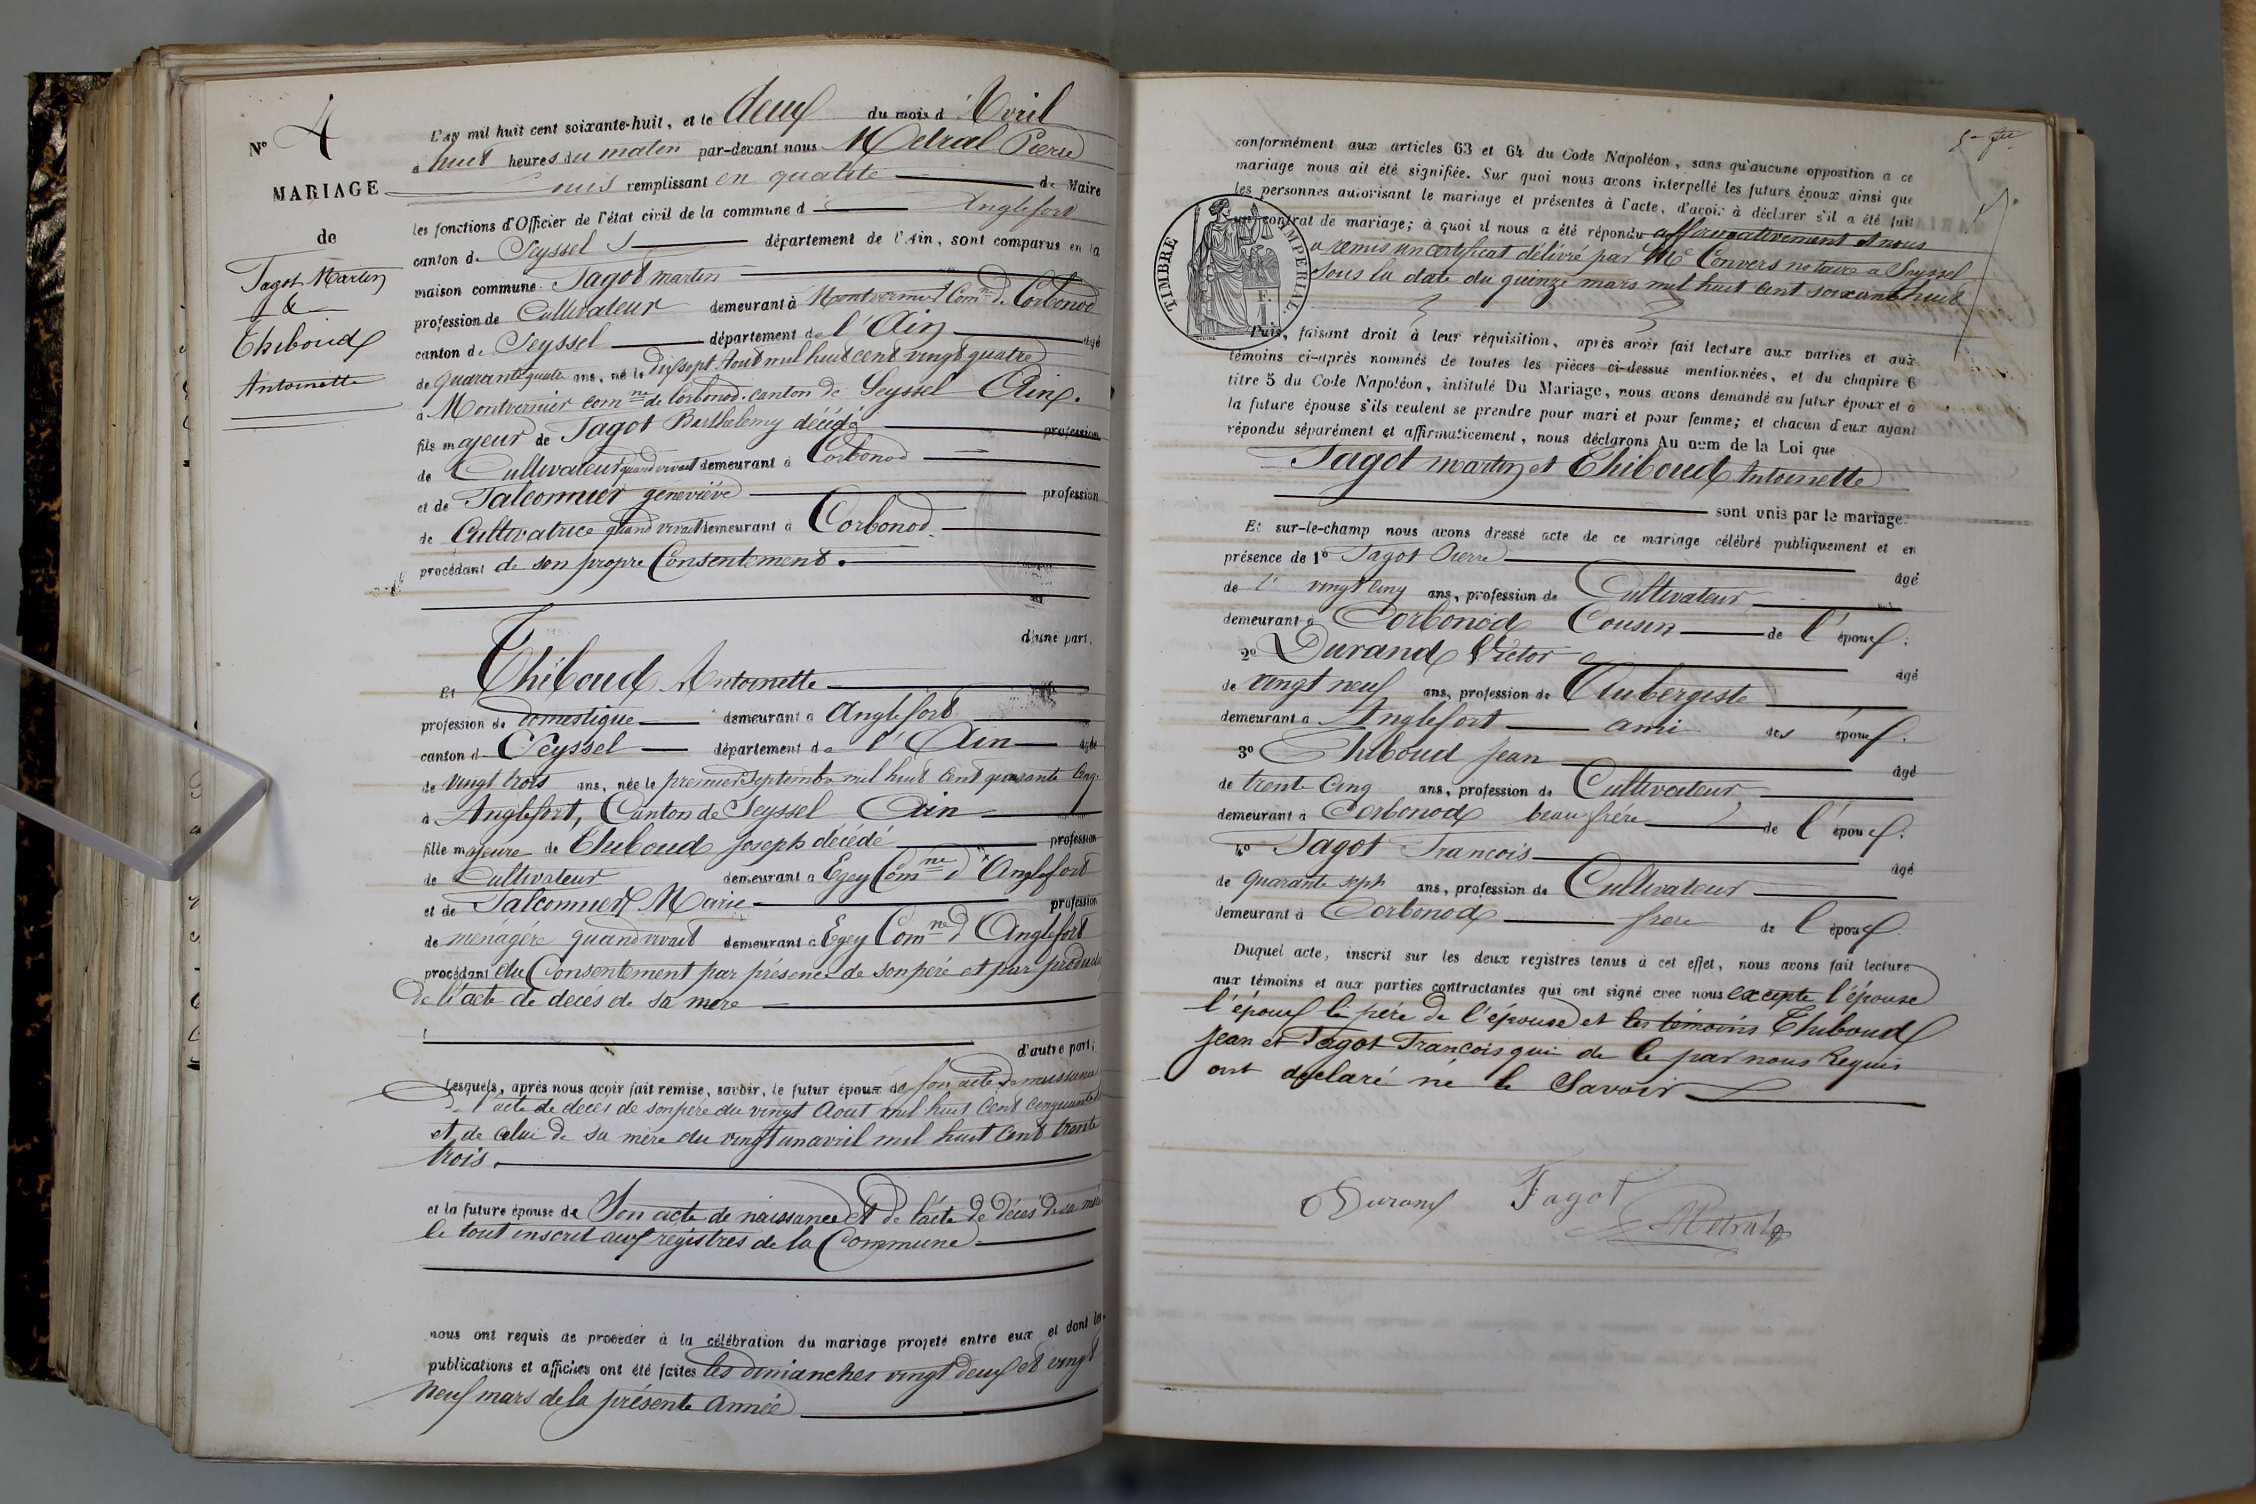 N° 4
MARIAGE
de
Fagot Martin
&
Thiboud
Antoinette
L'an mil huit cent soixante-huit, et le deux du mois d'Avril
à huit heures du matin par-devant nous Metral Pierre
Louis remplissant en qualité de Maire
les fonctions d'Officier de l'état civil de la commune d Anglefort
canton de Seyssel département de l'Ain, sont comparus en la
maison commune Fagot martin
profession de Cultivateur demeurant à Montvernier Com ne de Corbonod
canton de Seyssel département de l'Ain âgé
de quarante quatre ans, né le dix sept Aout mil huit cent vingt quatre
à Montvernier com ne de Corbonod canton de Seyssel Ain.
fils majeur de Fagot Barthelemy décédé profession
de Cultivateur quand vivait demeurant à Corbonod
et de Falconnier géneviève profession
de Cultivatrice quand vivait demeurant à Corbonod.
procédant de son propre Consentement.
d'une part,
Et Thiboud Antoinette
profession de domestique demeurant à Anglefort
canton d Seyssel département de l'Ain âgée
de vingt trois ans, née le premier Septembre mil huit cent quarante cinq.
à Anglefort, Canton de Seyssel Ain
fille majeure de Thiboud joseph décédé profession
de Cultivateur demeurant à Egey Com ne d'Anglefort
et de Falconnier Marie profession
de menagére quand vivait demeurant à Egey Com ne d'Anglefort
procédant du Consentement par présence de son péré et par
De l'acte de decés de sa mere
d'autre part;
Lesquels, après nous avoir fait remise, savoir, le futur époux de son acte de naissance
de l'acte de decés de son pére du vingt Aout mil huit cent cinquante
et de celui de sa mére du vingt un avril mil huit cent trente
trois.
et la future épouse de Son acte de naissance et de l'acte de décés de sa mére
le tout inscrit aux régistres de la Commune
nous ont requis de procéder à la célébration du mariage projeté entre eux et dont les
publications et affiches ont été faites les dimanches vingt deux et vingt
neuf mars de la présente année
conformément aux articles 63 et 64 du Code Napoléon, sans qu'aucune opposition a ce
mariage nous ait été signifiée. Sur quoi nous avons interpellé les futurs époux ainsi que
les personnes autorisant le mariage et présentes à l'acte, d'avoir à déclarer s'il a été fait
un contrat de mariage; à quoi il nous a été répondu affirmativement et nous
a remis un certificat délivré par Me Convers notaire a Seyssel
Sous la date du quinze mars mil huit cent soixante huit
TIMBRE IMPERIAL
Puis, faisant droit à leur réquisition, après avoir fait lecture aux parties et aux
témoins ci-après nommés de toutes les pièces ci-dessus mentionnées, et du chapitre 6
titre 5 du Code Napoléon, intitulé Du Mariage, nous avons demandé au futur époux et à
la future épouse s'ils veulent se prendre pour mari et pour femme; et chacun d'eux ayant
répondu séparément et affirmativement, nous déclarons Au nom de la Loi que
Fagot martin et Thiboud Antoinette
sont unis par le mariage.
Et sur-le-champ nous avons dressé acte de ce mariage célébré publiquement et en
présence de 1° Fagot Pierre âgé
de vingt cinq ans, profession de Cultivateur
demeurant à Corbonod Cousin de l'époux.
2° Durand Victor âgé
de vingt neuf ans, profession de Aubergiste
demeurant à Anglefort ami des époux.
3° Thiboud jean âgé
de trente cinq ans, profession de Cultivateur
demeurant à Corbonod beau frére de l'époux.
4° Fagot Francois âgé
de quarante sept ans, profession de Cultivateur
demeurant à Corbonod frere de l'époux
Duquel acte, inscrit sur les deux registres tenus à cet effet, nous avons fait lecture
aux témoins et aux parties contractantes qui ont signé avec nous excepte l'épouse
l'époux le pére de l'épouse et les témoins Thiboud
jean et Fagot Francois qui de le par nous Requis
ont declaré né le Savoir
Durand Fagot
Metral